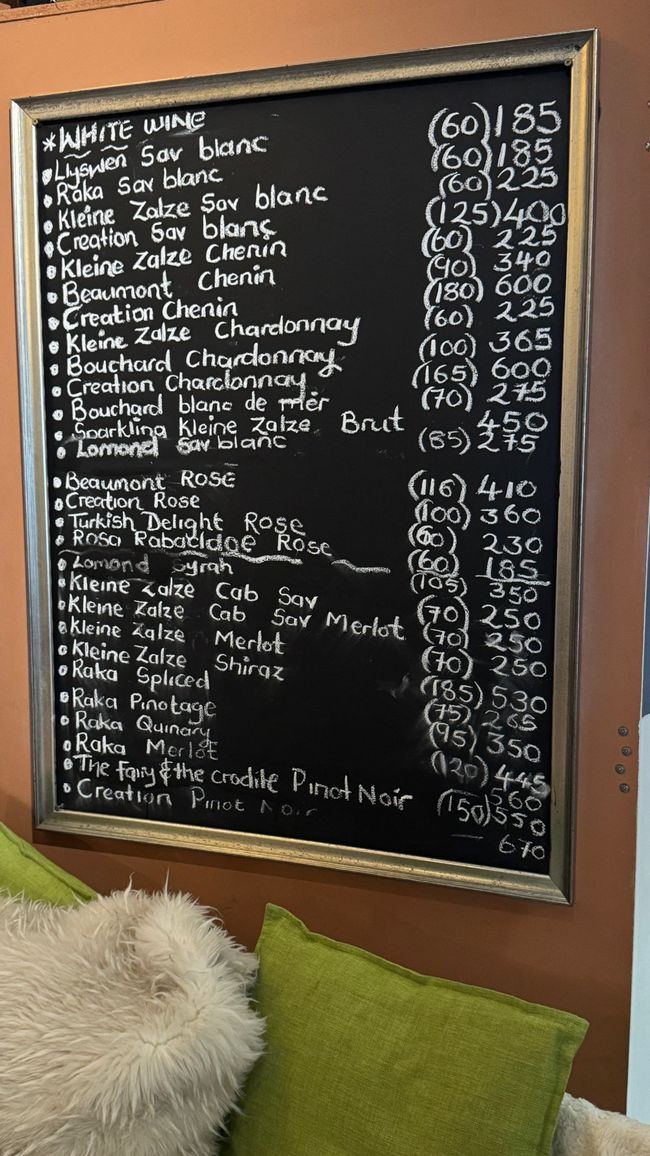 *WHITE WINE
Llyswen Sav blanc (60) 185
Raka Sav blanc (60) 185
Kleine Zalze Sav blanc (60) 225
Creation Sav blanc (125) 400
Kleine Zalze Chenin (60) 225
Beaumont Chenin (90) 340
Creation Chenin (180) 600
Kleine Zalze Chardonnay (60) 225
Bouchard Chardonnay (100) 365
Creation Chardonnay (165) 600
Bouchard blanc de mer (70) 275
Sparkling Kleine Zalze Brut 450
Lomond Sav blanc (85) 275
Beaumont ROSE (116) 410
Creation ROSE (100) 360
Turkish Delight ROSE (60) 230
Rosa Rose (60) 185
Lomond Syrah (105) 350
Kleine Zalze Cab Sav (70) 250
Kleine Zalze Cab Sav Merlot (70) 250
Kleine Zalze Merlot (70) 250
Kleine Zalze Shiraz (185) 530
Raka Spliced (75) 265
Raka Pinotage (95) 350
Raka Quinary (120) 445
Raka Merlot 560
The Fairy & the crodile Pinot Noir (150) 550
Creation Pinot Noir 670